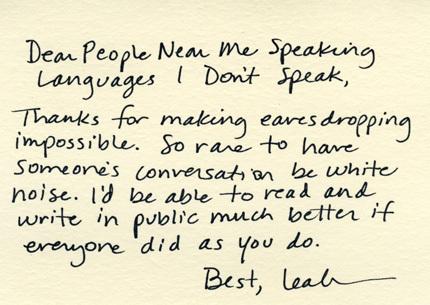 Dear People Near Me Speaking
Languages I Don't Speak,
Thanks for making eavesdropping
impossible. So rare to have
someone's conversation be white
noise. I'd be able to read and
write in public much better if
everyone did as you do.
Best, Leah